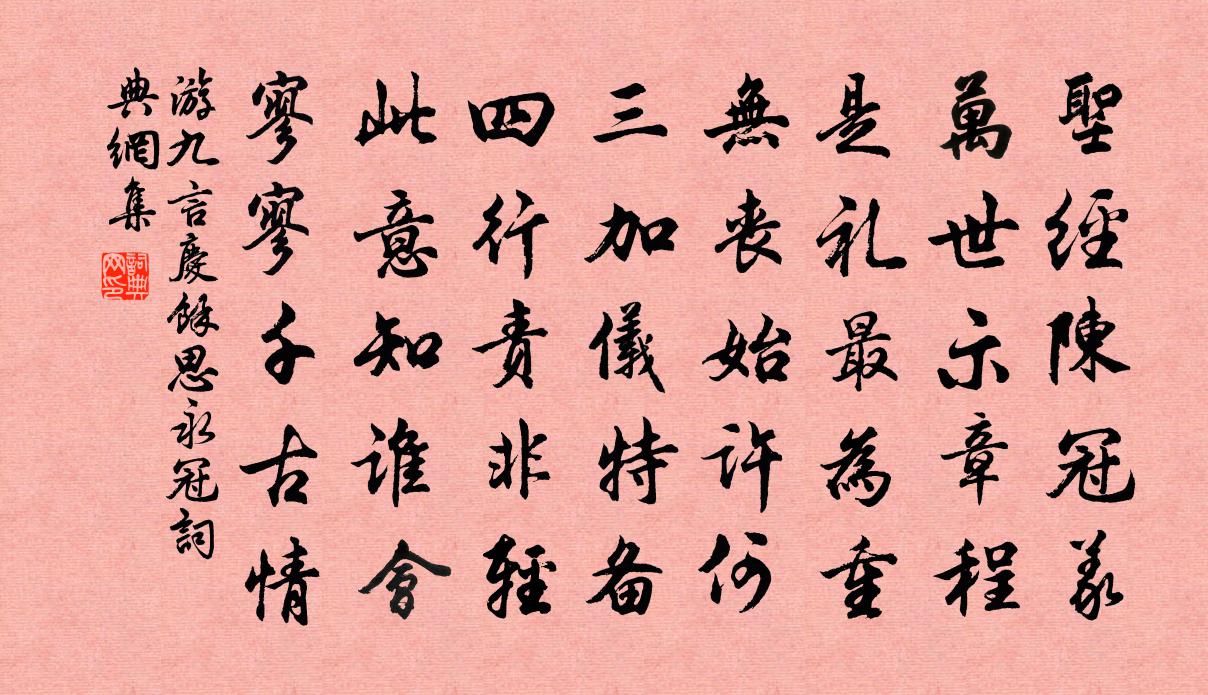 聖經陳冠義
萬世示章程
是礼最為重
無丧始許何
三加儀特备
四行责非輕
此意知谁會
寥寥千古情
游九言慶餘思永冠詞
典網集
詞典网印